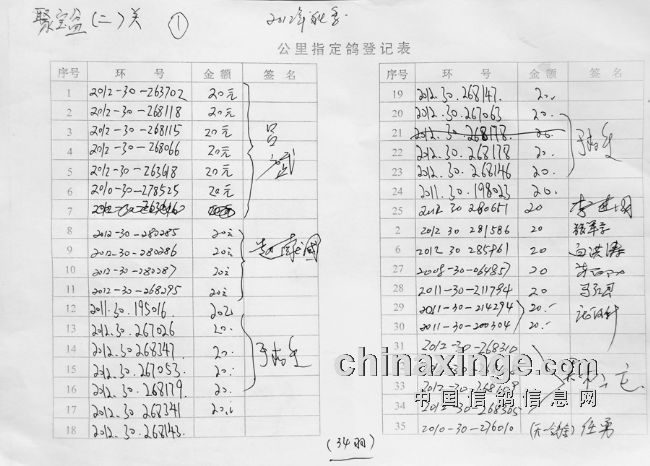 聚宝盆(二)关 ① 2012年秋季
公里指定鸽登记表
序号 环号 金额 签名
1 2012-30-263702 20元
2 2012-30-268118 20元
3 2012-30-268115 20元
4 2012-30-268066 20元
5 2012-30-263618 20元
6 2010-30-278525 20元
7
8 2012-30-280285 20元
9 2012-30-280286 20元
10 2012-30-280287 20元
11 2012-30-268295 20元
12 2011.30.195016 20元
13 2012.30.267026 20.
14 2012.30.268347 20.
15 2012.30.267053 20.
16 2012.30.268179 20.
17 2012.30.268341 20元
18 2012.30.268143
序号 环号 金额 签名
19 2012.30.268147 20.
20 2012.30.267063 20.
21 2012.30.268178 20.
22 2012.30.268178 20.
23 2012.30.268146 20.
24 2011.30.198023 20.
25 2012 30 280651 20
2 2012 30 281586 20
6 2012 30 285961 20 白洪涛
27 2008-30-064857 20
28 2011-30-211794 20
29 2011-30-214294 20.
30 2011-30-200304 20.
31 2012-30-268310
33
34
35 2010-30-276010 任勇
(34羽)
chinaxinge.com
中国信鸽信息网